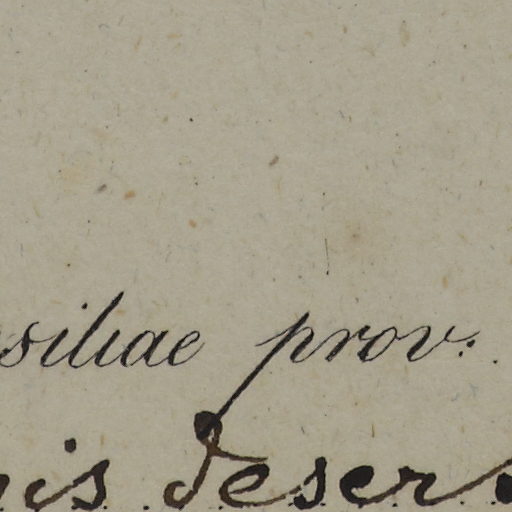 siliae prov.
is deser